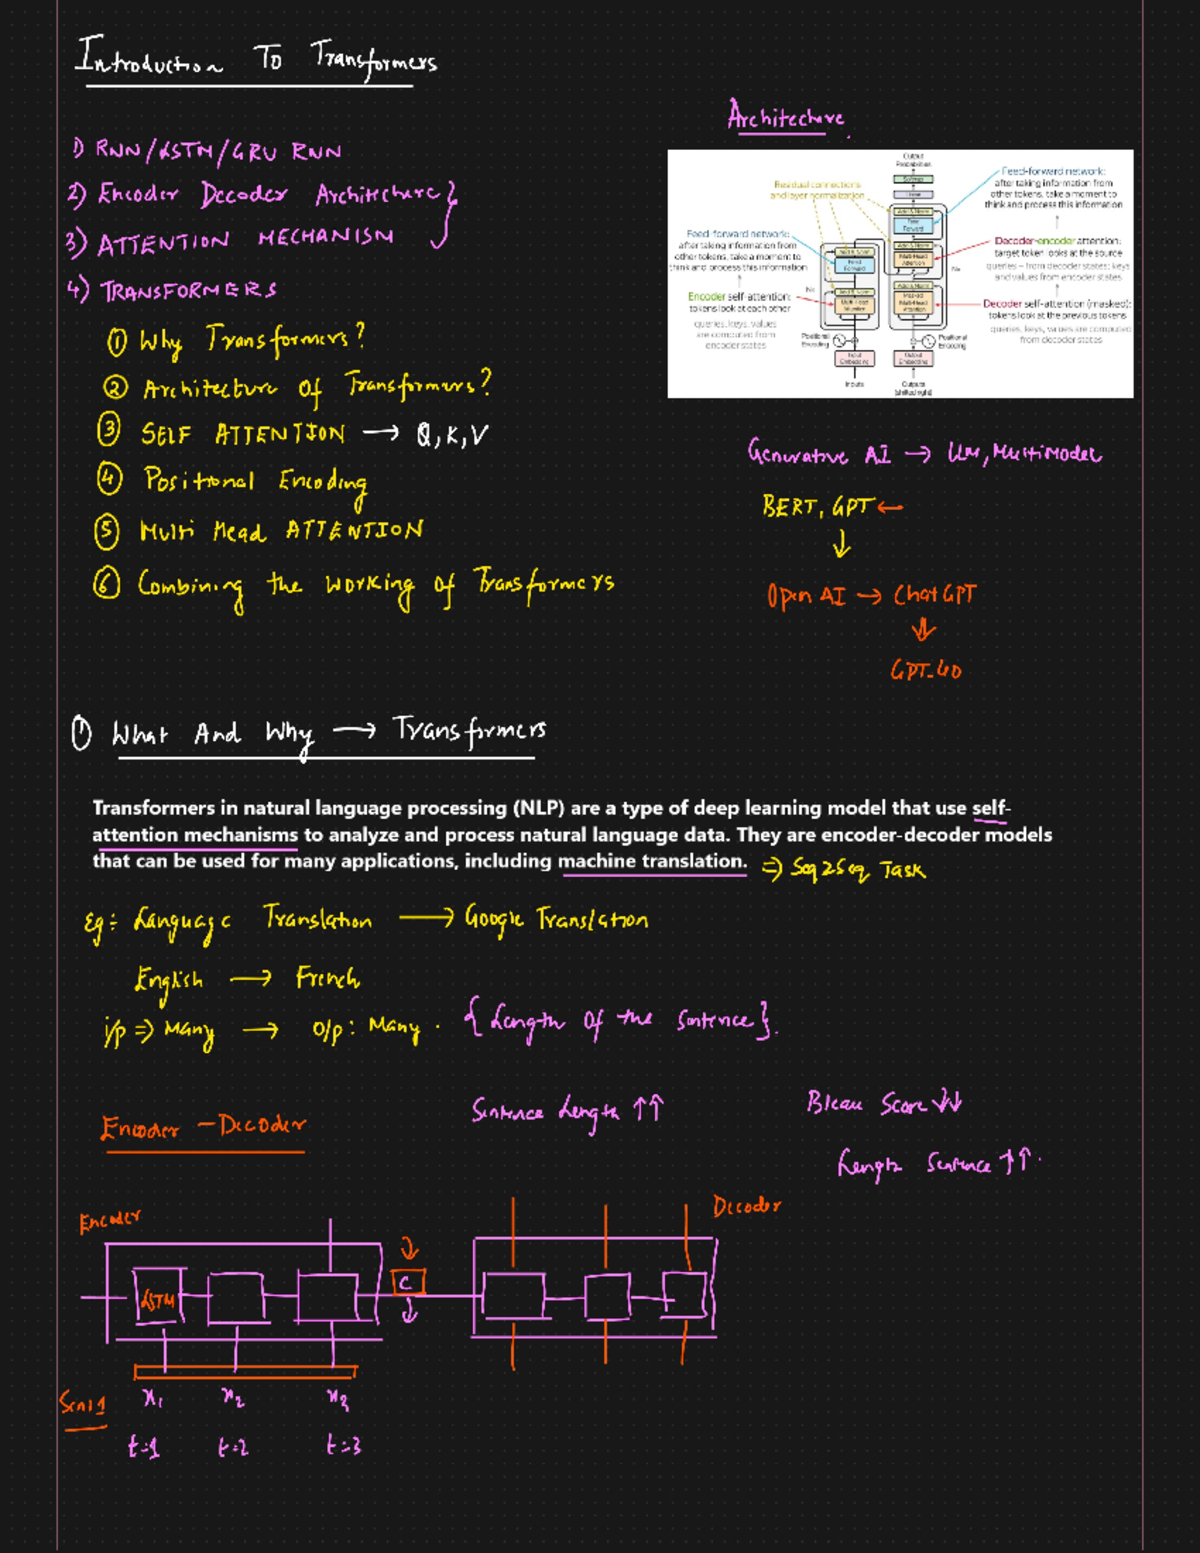 Introduction To Transformers
Architecture
1) RNN/LSTM/GRU RNN
2) Encoder Decoder Architecture
3) ATTENTION MECHANISM
4) TRANSFORMERS
① Why Transformers?
② Architecture Of Transformers?
③ SELF ATTENTION → Q,K,V
④ Positional Encoding
⑤ Multi Head ATTENTION
⑥ Combining the working of Transformers
Output
Probabilities
Softmax
Linear
Residual connections
and layer normalization
Feed-forward network:
after taking information from
other tokens, take a moment to
think and process this information
Feed-forward network:
after taking information from
other tokens, take a moment to
think and process this information
Encoder self-attention:
tokens look at each other
queries, keys, values
are computed from
encoder states
Decoder-encoder attention:
target token looks at the source
queries – from decoder states; keys
and values from encoder states
Decoder self-attention (masked):
tokens look at the previous tokens
queries, keys, values are computed
from decoder states
Add & Norm
Feed
Forward
Add & Norm
Multi-Head
Attention
Add & Norm
Feed
Forward
Add & Norm
Multi-Head
Attention
Add & Norm
Masked
Multi-Head
Attention
Nx
Nx
Positional
Encoding
Positional
Encoding
Input
Embedding
Output
Embedding
Inputs
Outputs
(shifted right)
Generative AI → LLM, MultiModel
BERT, GPT ←
Open AI → ChatGPT
GPT-4o
① What And Why → Transformers
Transformers in natural language processing (NLP) are a type of deep learning model that use self-
attention mechanisms to analyze and process natural language data. They are encoder-decoder models
that can be used for many applications, including machine translation. ⇒ Seq2Seq Task
Eg: Language Translation → Google Translation
English → French
i/p ⇒ Many → o/p: Many. {Length Of the Sentence}.
Encoder - Decoder
Sentence Length ↑↑
Bleau Score ↓↓
Length Sentence ↑↑.
Encoder
Decoder
LSTM
C
Sent 1
x₁ x₂ x₃
t=1 t=2 t=3